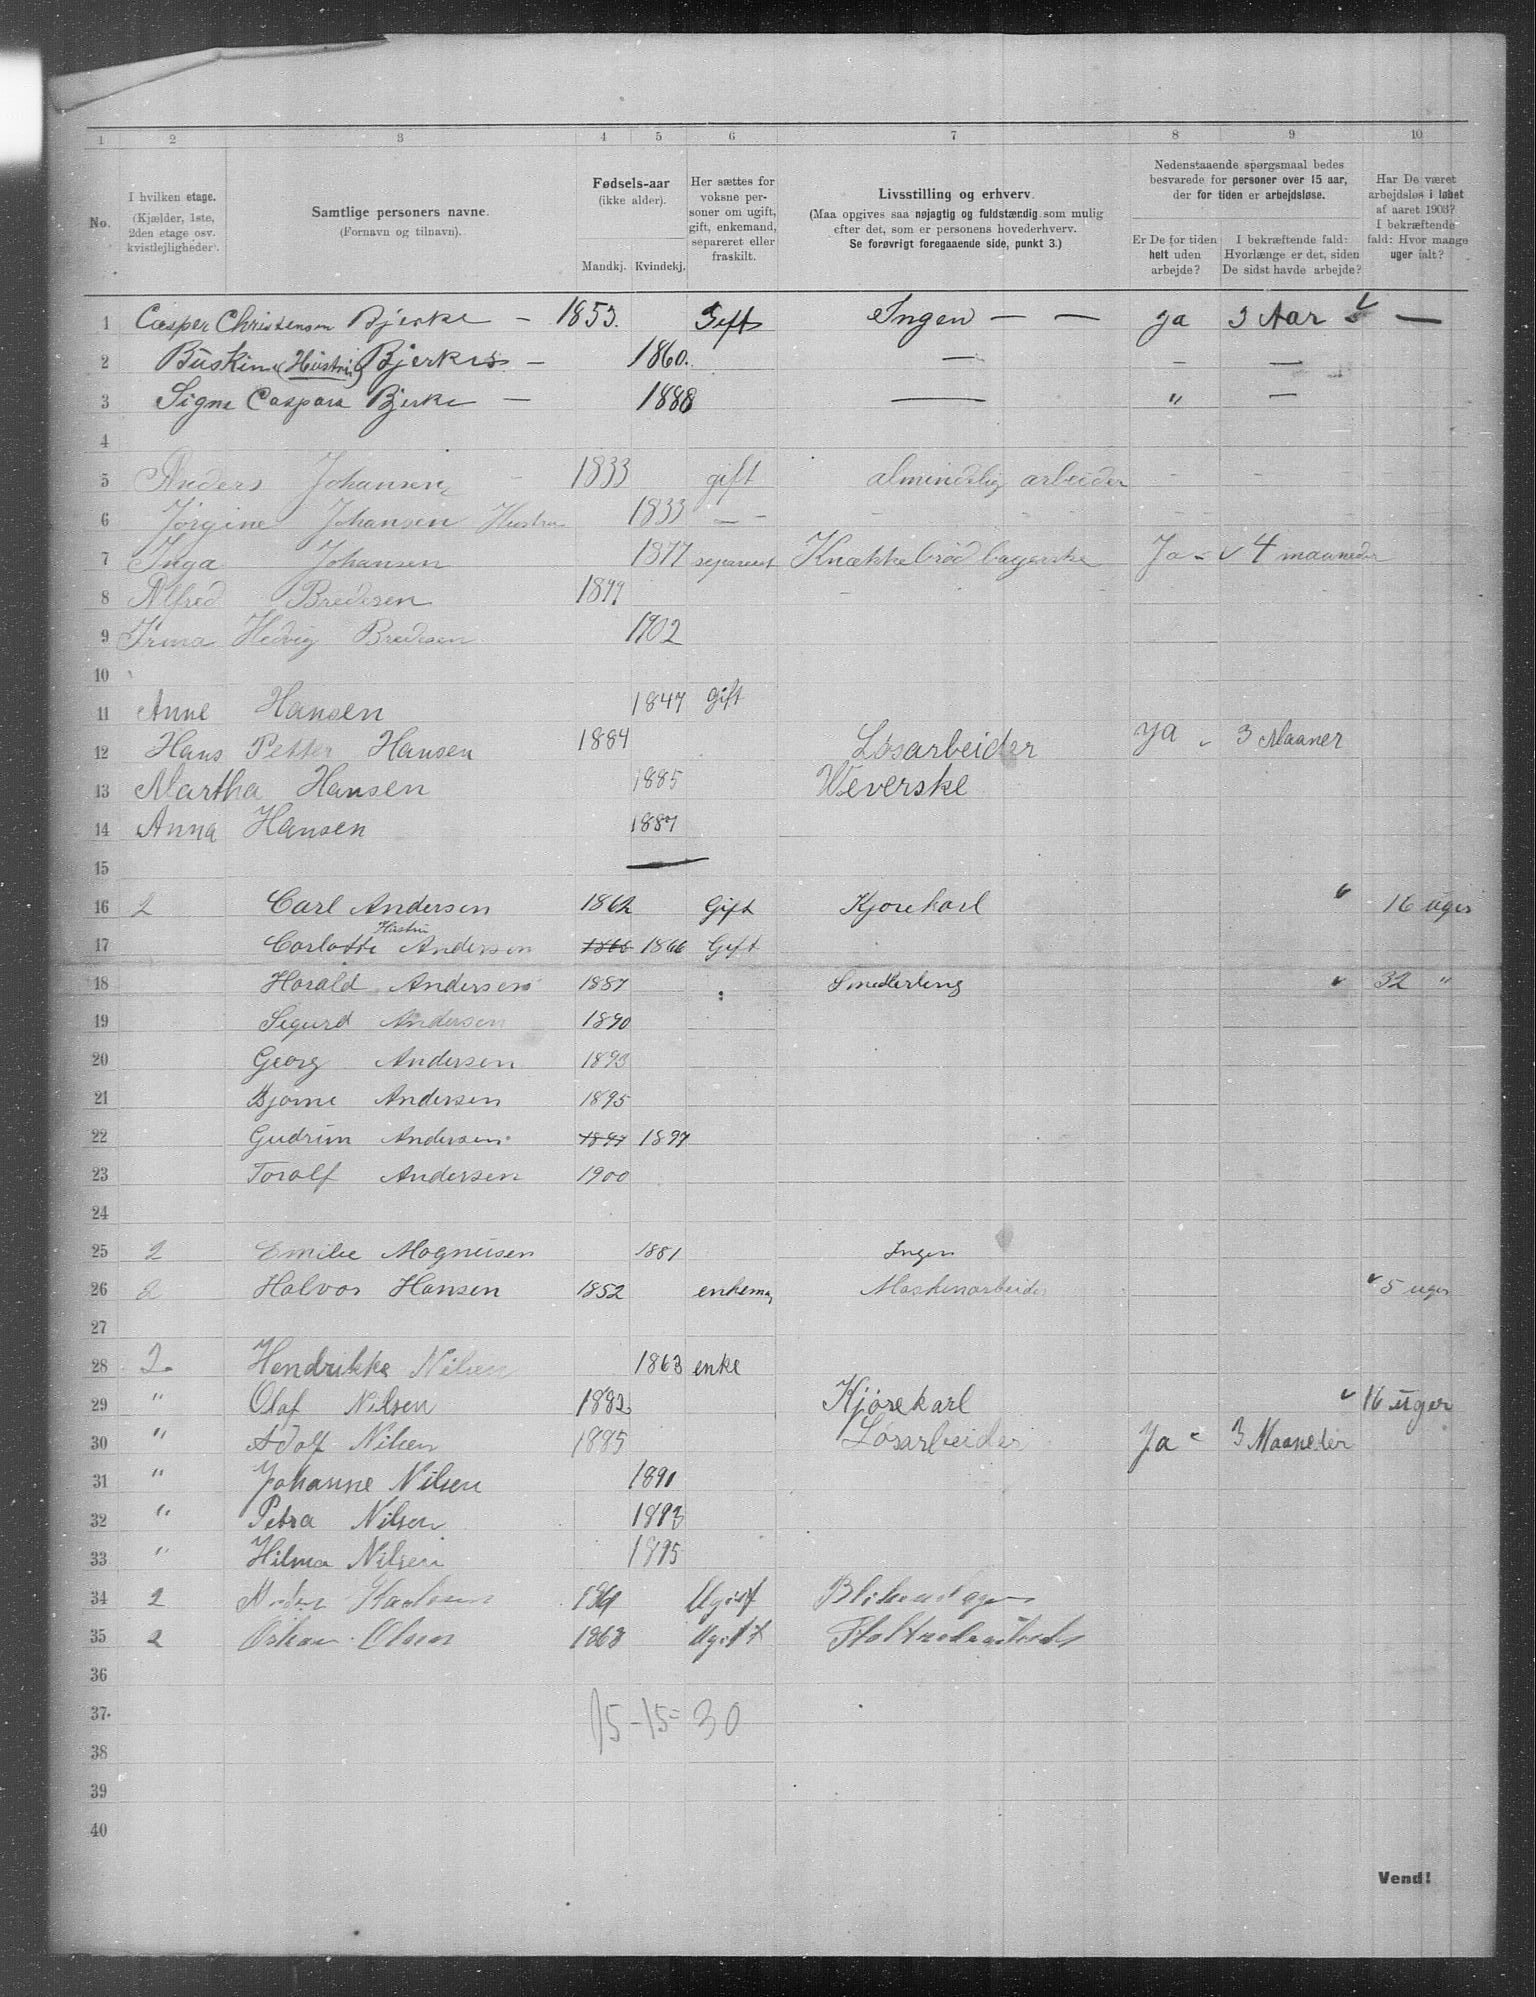 1 2 3 4 5 6 7 8 9 10
No.
I hvilken etage. (Kjælder, 1ste, 2den etage osv. kvistlejligheder).
Samtlige personers navne. (Fornavn og tilnavn).
Fødsels-aar (ikke alder). Mandkj. Kvindekj.
Her sættes for voksne personer om ugift, gift, enkemand, separeret eller fraskilt.
Livsstilling og erhverv. (Maa opgives saa nøjagtig og fuldstændig som mulig efter det, som er personens hovederhverv. Se forøvrigt foregaaende side, punkt 3.)
Nedenstaaende spørgsmaal bedes besvarede for personer over 15 aar, der for tiden er arbejdsløse.
Er De for tiden helt uden arbejde?
I bekræftende fald: Hvorlænge er det, siden De sidst havde arbejde?
Har De været arbejdsløs i løbet af aaret 1903? I bekræftende fald: Hvor mange uger ialt?
1 Casper Christensen Bjerke — 1853. Gift Ingen — — ja 3 Aar —
2 (Hustru) Bjerke — 1860. — - —
3 Signe Caspara Bjerke — 1888 — " —
4
5 Anders Johansen - 1833 gift almindelig arbeider - -
6 Jørgine Johansen Hustru 1833 — -
7 Inga Johansen 1877 separert Knækkebrød bagerske Ja - 4 maaneder
8 Alfred Bredesen 1899
9 Irma Hedvig Bredesen 1902
10
11 Anne Hansen 1847 gift
12 Hans Petter Hansen 1884 Løsarbeider ja 3 Maaner
13 Martha Hansen 1885 Weverske
14 Anna Hansen 1887
15 —
16 2 Carl Andersen 1862 Gift Kjørekarl 16 uger
17 Carlotte Hustru Andersen 1866 1866 Gift
18 Harald Andersen 1887 Smedlerling 32 "
19 Sigurd Andersen 1890
20 Georg Andersen 1893
21 Bjarne Andersen 1895
22 Gudrun Andersen 1897 1897
23 Toralf Andersen 1900
24
25 2 Emilie Magnusen 1881 Ingen
26 2 Halvor Hansen 1852 enkema Maskinarbeider 5 uger
27
28 2. Hendrikke Nilsen 1863 enke
29 " Olaf Nilsen 1882 Kjørekarl 16 uger
30 " Adolf Nilsen 1885 Løsarbeider Ja 3 Maaneder
31 " Johanne Nilsen 1891
32 " Petra Nilsen 1893
33 " Hilma Nilsen 1895
34 2 Ugift
35 2 Olsen 1863 Ugift
36
37 15-15=30
38
39
40
Vend!